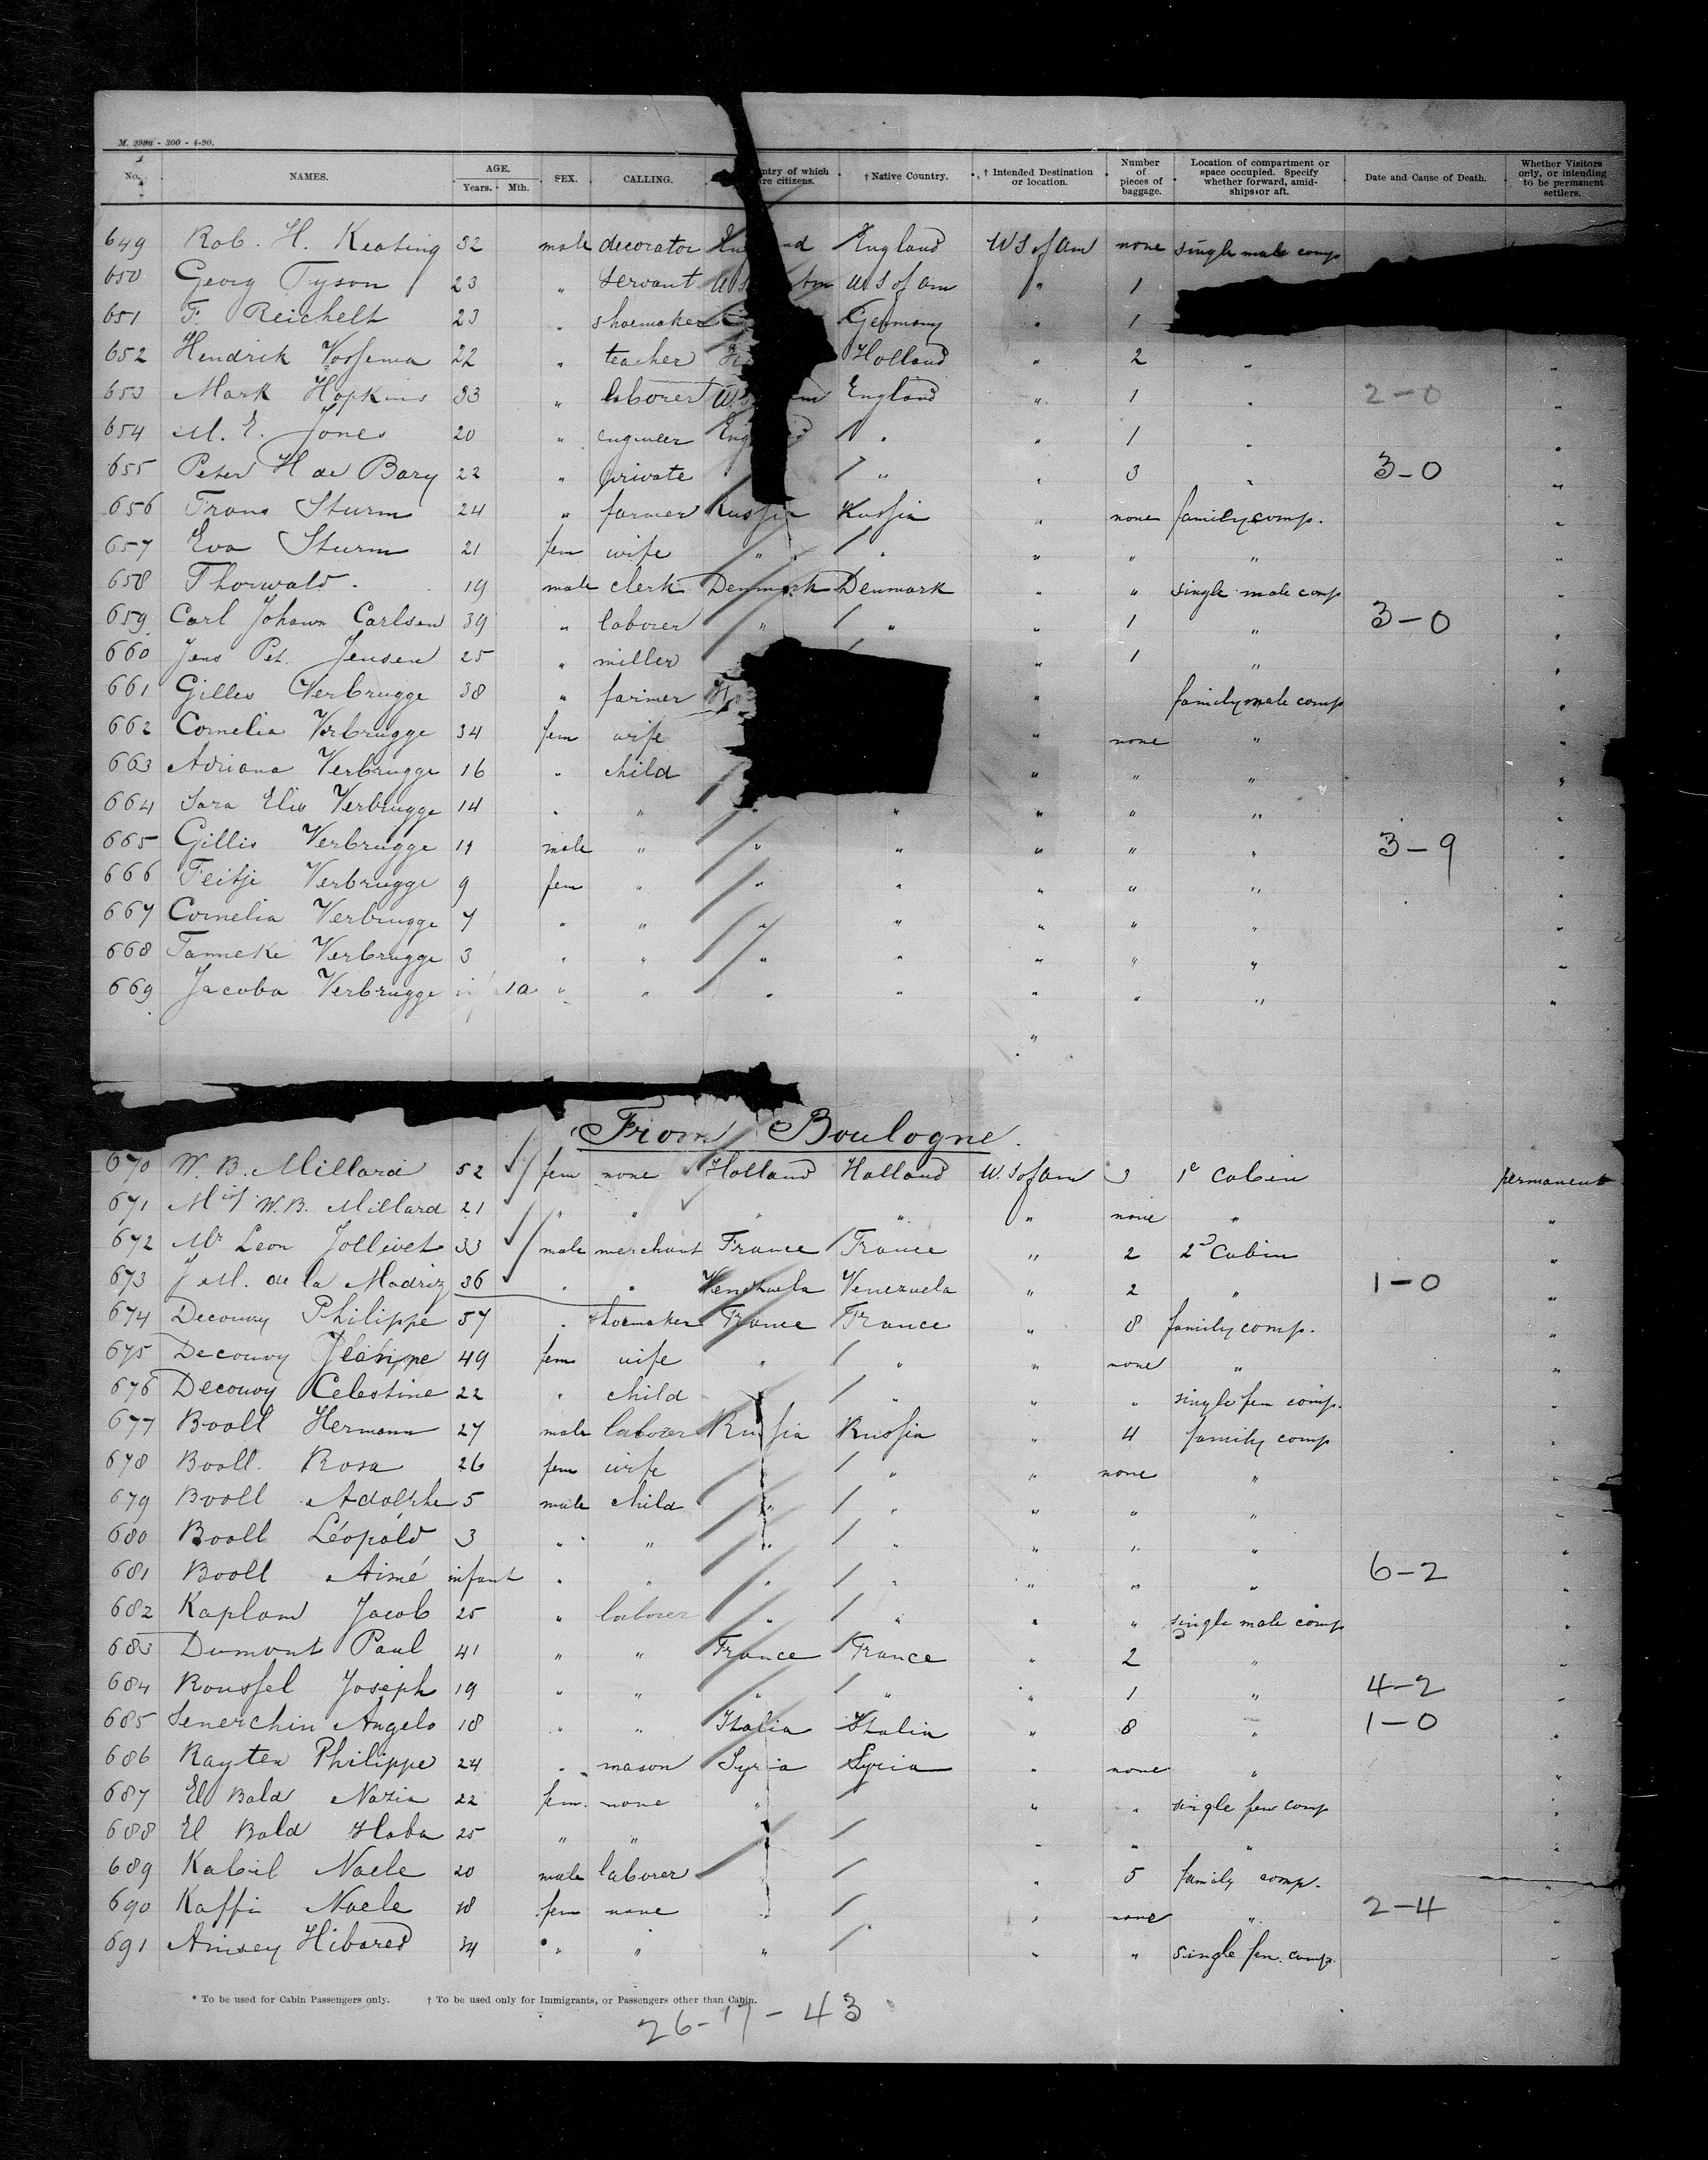 M. 2998 - 300 - 4-90.
No. NAMES. AGE. Years. Mth. SEX. CALLING. ntry of which re citizens. † Native Country. † Intended Destination or location. Number of pieces of baggage. Location of compartment or space occupied. Specify whether forward, amidships or aft. Date and Cause of Death. Whether Visitors only, or intending to be permanent settlers.
649 Rob. H. Keating 32 male decorator England U S of Am none single male comp
650 Georg Tyson 23 " servant U S Am U S of Am " 1
651 F. Reichelt 23 " shoemaker Germany " 1
652 Hendrik 22 " teacher Holland " 2 " "
653 Mark Hopkins 33 " laborer U S England " 1 " 2-0 "
654 M. E. Jones 20 " engineer Eng d " " 1 " "
655 Peter H de Bary 22 " private " " 3 " 3-0 "
656 Frans Sturm 24 " farmer Russia Russia " none family comp. "
657 Eva Sturm 21 fem wife " " " " " "
658 Thorwald. 19 male clerk Denmark Denmark " " single male comp "
659 Carl Johann Carlsen 39 " laborer " " " 1 " 3-0 "
660 Jens Pet. Jensen 25 " miller " 1 " "
661 Gilles Verbrugge 38 " farmer " family male comp "
662 Cornelia Verbrugge 34 fem wife " none " "
663 Adriana Verbrugge 16 " child " " " "
664 Sara Elis Verbrugge 14 " " " " " " " "
665 Gillis Verbrugge 11 male " " " " " " 3-9 "
666 Feitje Verbrugge 9 fem " " " " " " "
667 Cornelia Verbrugge 7 " " " " " " " "
668 Tanneke Verbrugge 3 " " " " " " " "
669 Jacoba Verbrugge 10 " " " " " " " "
"
From Boulogne.
670 W. B. Millard 52 fem none Holland Holland U. S of Am 3 1e Cabin permanent
671 W. B. Millard 21 " " " " " none " "
672 Mr Leon Jollivet 33 male merchant France France " 2 2d Cabin "
673 J M. de la Madriz 36 " " Venezuela Venezuela " 2 " 1-0 "
674 Decouvy Philippe 57 " shoemaker France France " 8 family comp. "
675 Decouvy 49 fem wife " " " none " "
676 Decouvy Celestine 22 " child " " " single fem comp. "
677 Booll Hermann 27 male laborer Russia Russia " 4 family comp "
678 Booll Rosa 26 fem wife " " " none " "
679 Booll Adolphe 5 male child " " " " " "
680 Booll Léopold 3 " " " " " " " "
681 Booll Aimé infant " " " " " " " 6-2 "
682 Kaplan Jacob 25 " laborer " " " " single male comp "
683 Dumont Paul 41 " " France France " 2 " "
684 Roussel Joseph 19 " " " " " 1 " 4-2 "
685 Senerchin Angelo 18 " " Italia Italia " 8 " 1-0 "
686 Rayten Philippe 24 " mason Syria Syria " none " "
687 El Bald Nazia 22 fem. none " " " single fem comp "
688 El Bald Haba 25 " " " " " "
689 Kabil Naele 20 male laborer " 5 family comp. "
690 Kaffi Naele 18 fem none " none " 2-4 "
691 Hibared 34 " " " " " single fem. comp. "
* To be used for Cabin Passengers only. † To be used only for Immigrants, or Passengers other than Cabin.
26-17-43